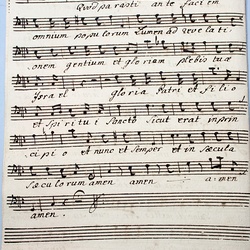 Quod parasti ante faciem
omnium populorum Lumen ad revelati
onem gentium et gloriam plebis tuae
Israel gloria Patri et Filio
et Spiritui Sancto Sicut erat in prin
cipio et nunc et Semper et in Saecula
Saeculorum amen amen a-men
amen.